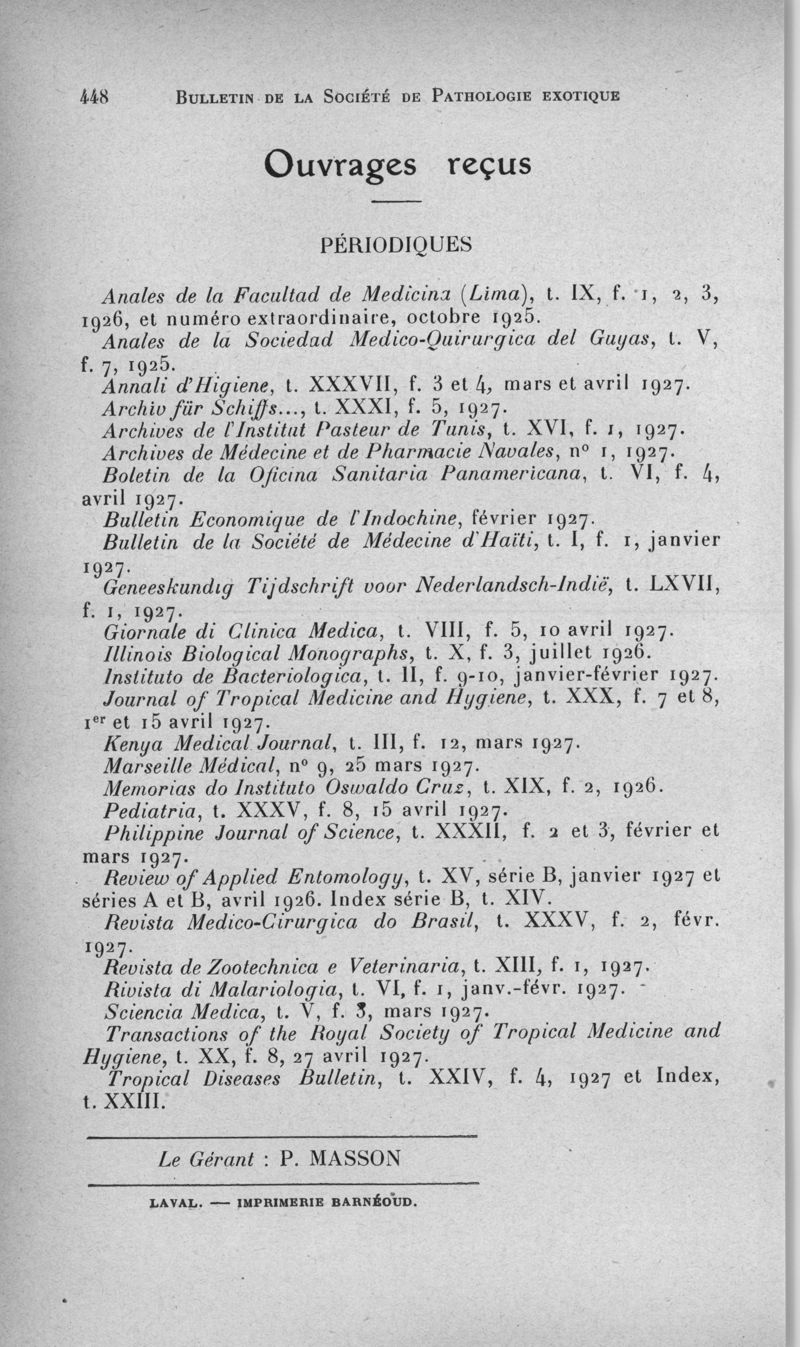 448 BULLETIN DE LA SOCIÉTÉ DE PATHOLOGIE EXOTIQUE
Ouvrages reçus
PÉRIODIQUES
Anales de la Facultad de Medicina (Lima), t. IX, f. 1, 2, 3,
1926, et numéro extraordinaire, octobre 1925.
Anales de la Sociedad Medico-Quirurgica del Guyas, t. V,
f. 7, 1925.
Annali d'Higiene, t. XXXVII, f. 3 et 4, mars et avril 1927.
Archiv für Schiffs..., t. XXXI, f. 5, 1927.
Archives de l'Institut Pasteur de Tunis, t. XVI, f. 1, 1927.
Archives de Médecine et de Pharmacie Navales, n° 1, 1927.
Boletin de la Oficina Sanitaria Panamericana, t. VI, f. 4,
avril 1927.
Bulletin Economique de l'Indochine, février 1927.
Bulletin de la Société de Médecine d'Haïti, t. I, f. 1, janvier
1927.
Geneeskundig Tijdschrift voor Nederlandsch-Indië, t. LXVII,
f. 1, 1927.
Giornale di Clinica Medica, t. VIII, f. 5, 10 avril 1927.
Illinois Biological Monographs, t. X, f. 3, juillet 1926.
Instituto de Bacteriologica, t. II, f. 9-10, janvier-février 1927.
Journal of Tropical Medicine and Hygiene, t. XXX, f. 7 et 8,
1er et 15 avril 1927.
Kenya Medical Journal, t. III, f. 12, mars 1927.
Marseille Médical, n° 9, 25 mars 1927.
Memorias do Instituto Oswaldo Cruz, t. XIX, f. 2, 1926.
Pediatria, t. XXXV, f. 8, 15 avril 1927.
Philippine Journal of Science, t. XXXII, f. 2 et 3, février et
mars 1927.
Review of Applied Entomology, t. XV, série B, janvier 1927 et
séries A et B, avril 1926. Index série B, t. XIV.
Revista Medico-Cirurgica do Brasil, t. XXXV, f. 2, févr.
1927.
Revista de Zootechnica e Veterinaria, t. XIII, f. 1, 1927.
Rivista di Malariologia, t. VI, f. 1, janv.-févr. 1927.
Sciencia Medica, t. V, f. 3, mars 1927.
Transactions of the Royal Society of Tropical Medicine and
Hygiene, t. XX, f. 8, 27 avril 1927.
Tropical Diseases Bulletin, t. XXIV, f. 4, 1927 et Index,
t. XXIII.
Le Gérant : P. MASSON
LAVAL. — IMPRIMERIE BARNÉOUD.